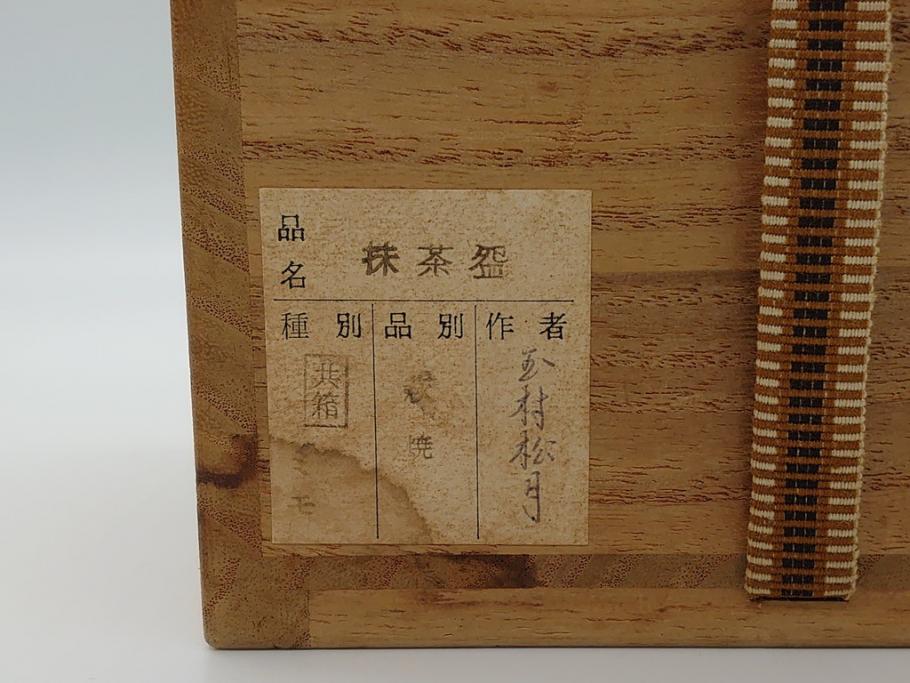 品名
抹茶盌
種別
共箱
モ
品別
焼
作者
玉村松月